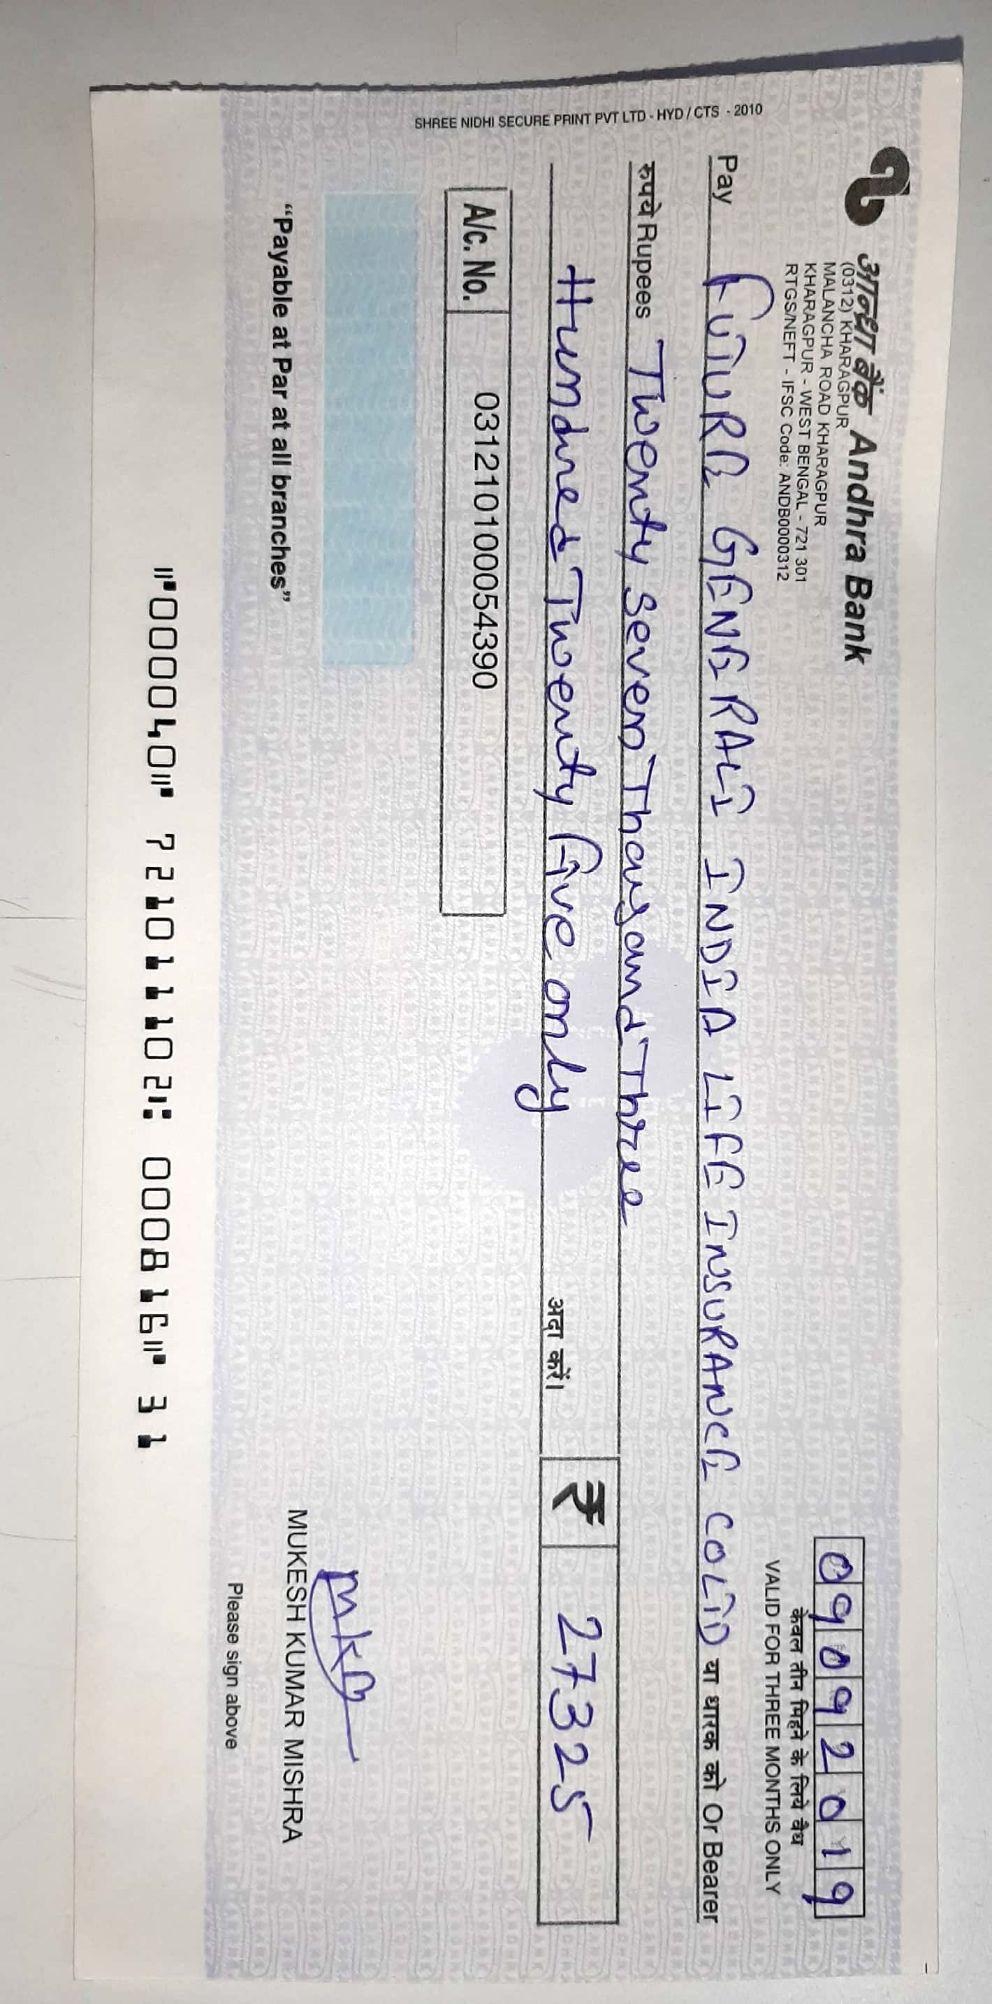 आन्ध्रा बैंक Andhra Bank
(0312) KHARAGPUR
MALANCHA ROAD KHARAGPUR
KHARAGPUR - WEST BENGAL - 721 301
RTGS/NEFT - IFSC Code: ANDB0000312
09092019
केवल तीन महिने के लिये वैध
VALID FOR THREE MONTHS ONLY
Pay FUTURE GENERALI INDIA LIFE INSURANCE COLTD या धारक को Or Bearer
रुपये Rupees Twenty Seven Thousand Three
Hundred Twenty Five only अदा करें। ₹ 27325
A/c. No. 031210100054390
"Payable at Par at all branches"
MKM
MUKESH KUMAR MISHRA
Please sign above
SHREE NIDHI SECURE PRINT PVT LTD - HYD / CTS - 2010
⑈000040⑈ 721011102⑆ 000816⑈ 31